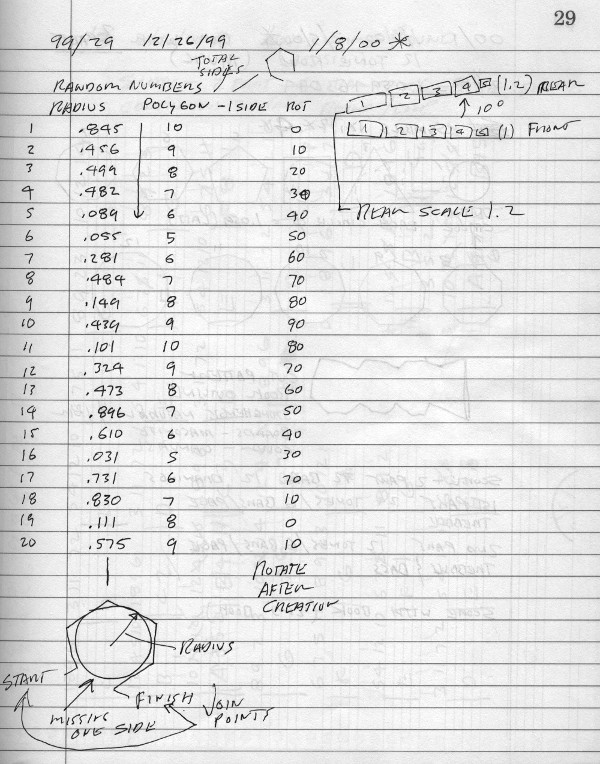 29
99/29 12/26/99 1/8/00 *
TOTAL
SIDES
RANDOM NUMBERS
RADIUS POLYGON -1 SIDE ROT
1 2 3 4 5 (1.2) REAR
10°
1 2 3 4 5 (1) FRONT
REAR SCALE 1.2
1 .845 10 0
2 .456 9 10
3 .499 8 20
4 .482 7 30
5 .089 6 40
6 .055 5 50
7 .281 6 60
8 .484 7 70
9 .149 8 80
10 .439 9 90
11 .101 10 80
12 .324 9 70
13 .473 8 60
14 .896 7 50
15 .610 6 40
16 .031 5 30
17 .731 6 70
18 .830 7 10
19 .111 8 0
20 .575 9 10
ROTATE
AFTER
CREATION
RADIUS
START
FINISH
JOIN
POINTS
MISSING
ONE SIDE